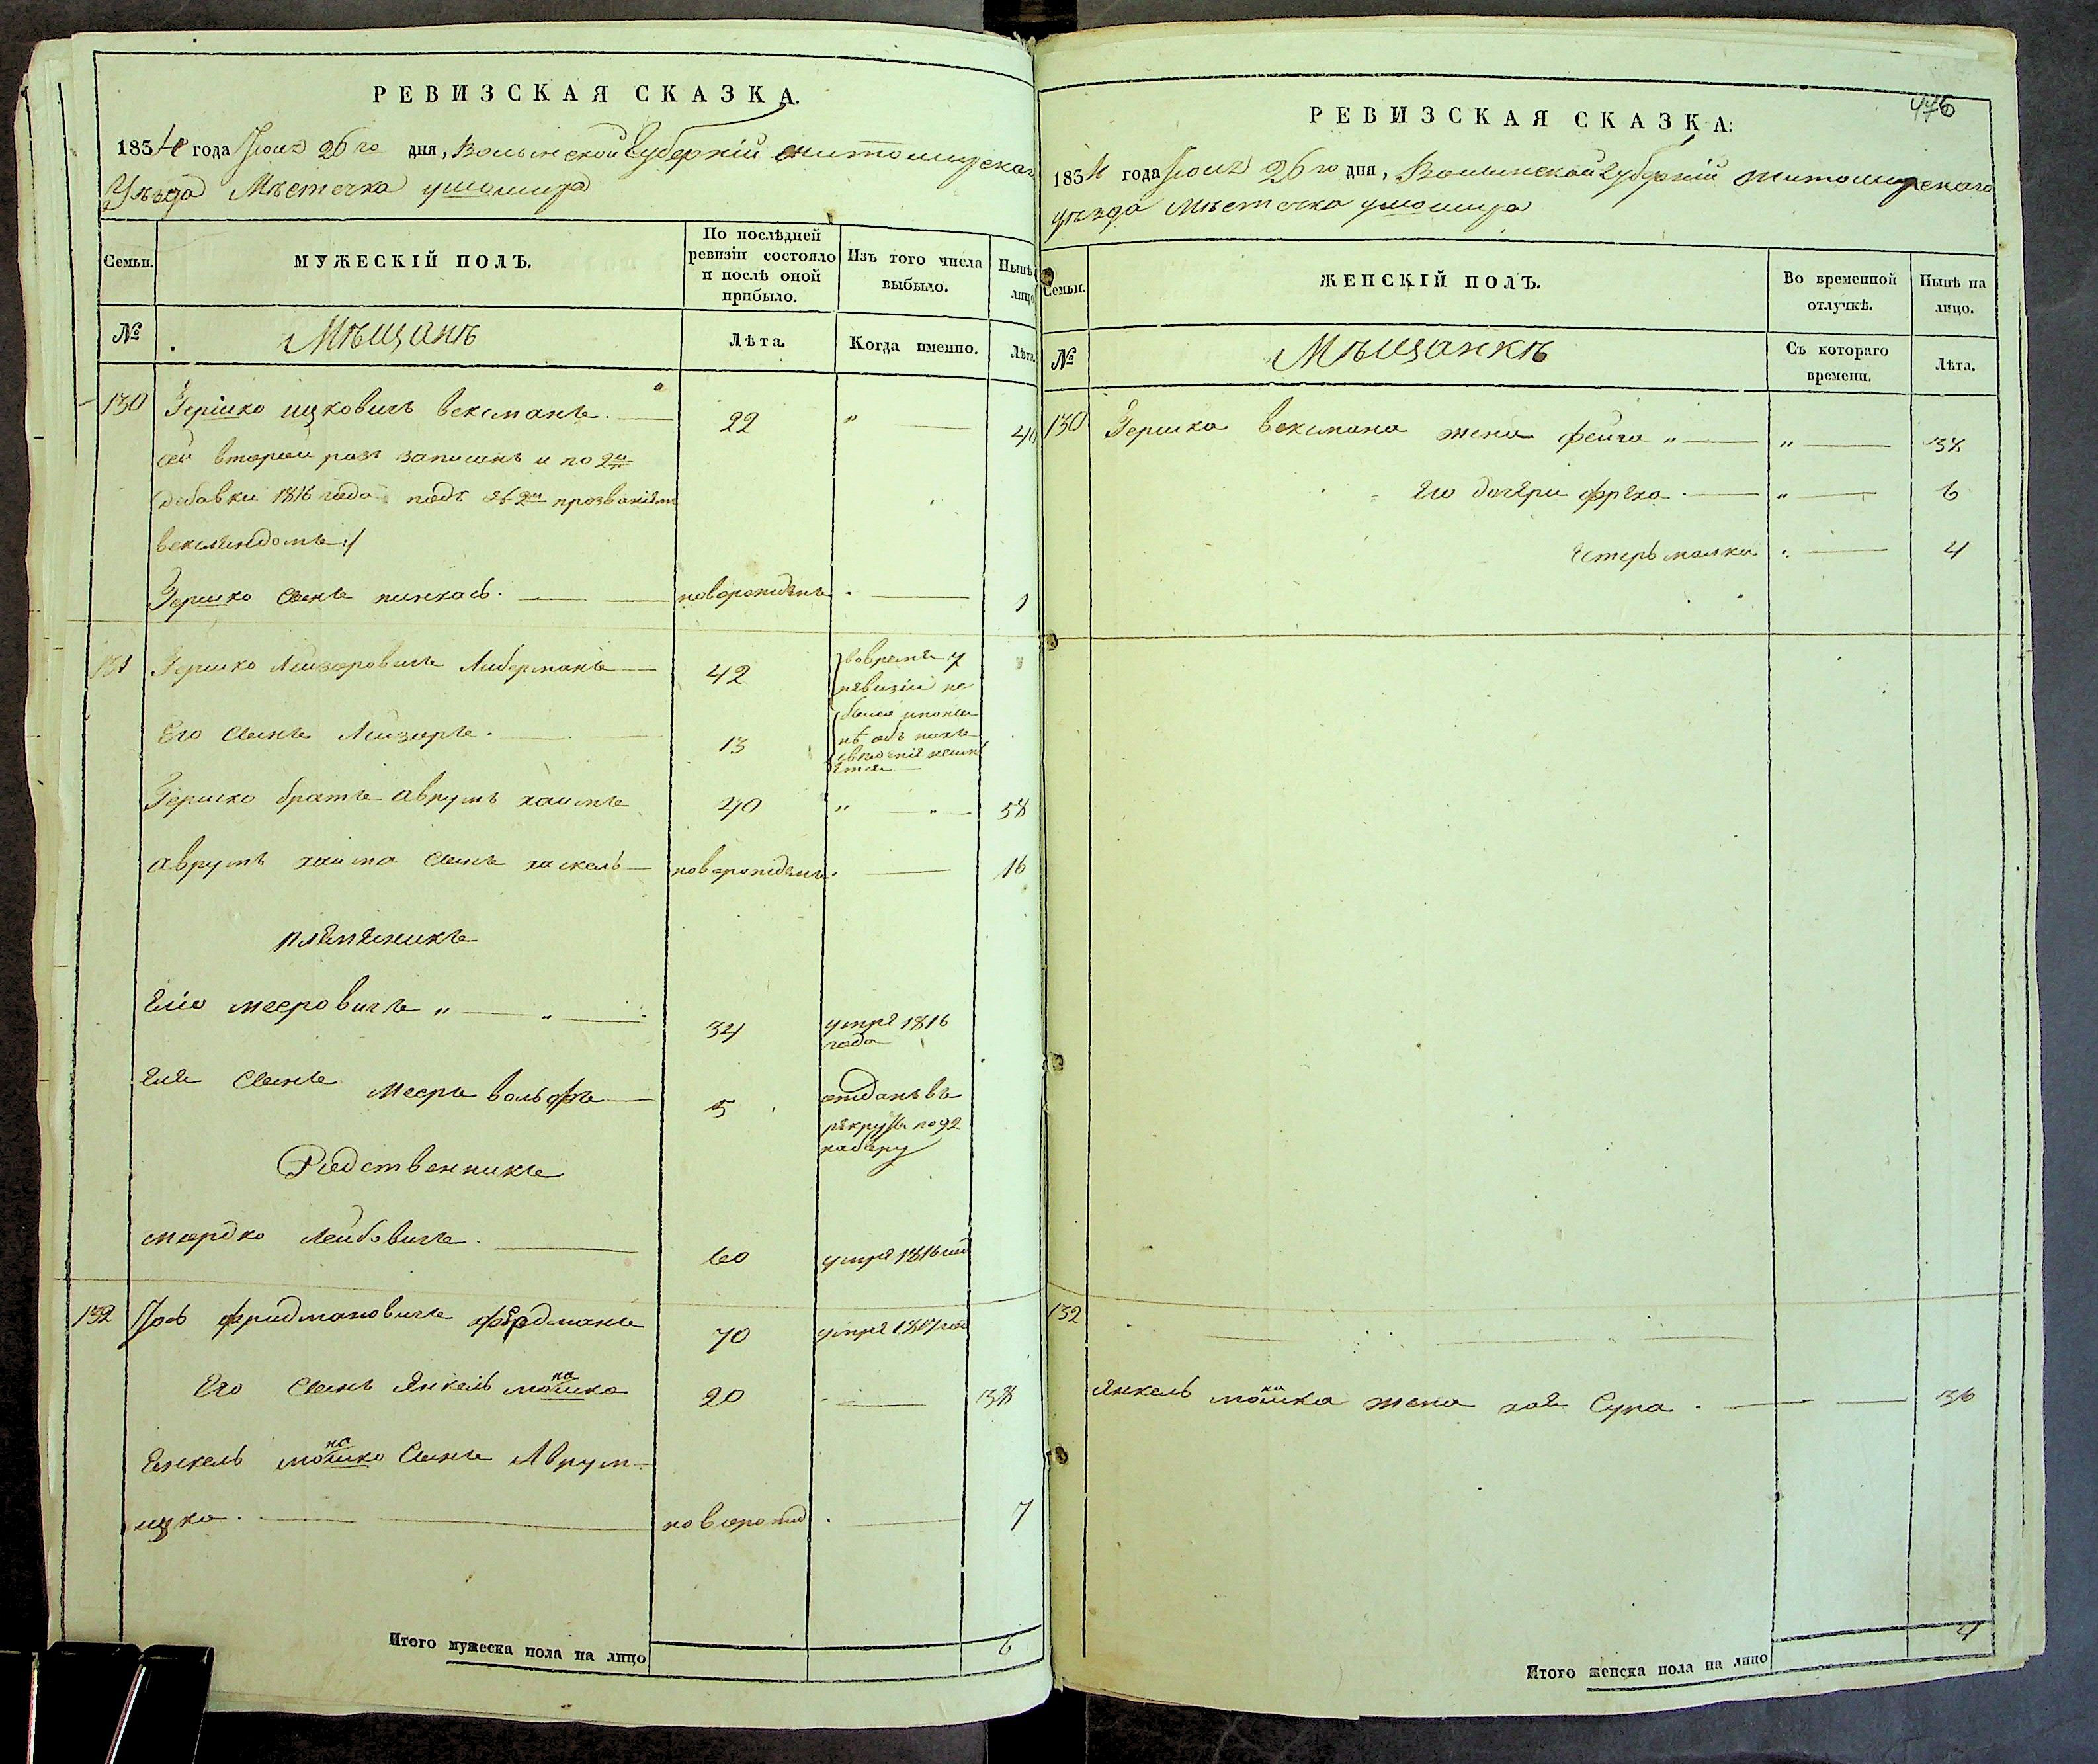 РЕВИЗСКАЯ СКАЗКА.
1834 года Июнѣ 26го дня, Волынской Губерніи Житомирскаго
Уѣзда Мѣстечка Ушомира
Семьи.
МУЖЕСКІЙ ПОЛЪ.
По послѣдней ревизіи состояло и послѣ оной прибыло.
Изъ того числа выбыло.
Нынѣ лицо
№
Мѣщанѣ
Лѣта.
Когда именно.
Лѣта.
130 Гершко ицковичъ вексманъ. 22 " 40
сей второй разъ записанъ и по 2й
добавки 1816 года подъ № 2м прозваніям
Гершко сынъ пинхасъ. новорожденъ 1
131 Гершко Лейзоровичъ Либерманъ 42 вовремя
ревизіи не
Его сынъ Лейзоръ. 13 были и поныне
нѣ объ нихъ
сведенія неимѣ
ется
Гершко братъ аврумъ хаимъ 40 " 58
аврумъ хаима сынъ хаскель новорожденъ 16
плѣмѣникъ
Еліо мееровичъ " 34 умре 1816
года
Еля сынъ Мееръ вольфъ 5 отданъ въ
рекруты по 92
набору
Родственникъ
мордко Лейбовичъ. 60 умре 1816 год
132 Іось фридмановичъ фердманъ 70 умре 1817 год
Его сынъ Янкель мошко 20 38
Енкель мошко сынъ Аврум
ицко. новорожд 7
Итого мужеска пола на лицо 6
446
РЕВИЗСКАЯ СКАЗКА:
1834 года Июнѣ 26го дня, Волынской Губерніи Житомирскаго
уѣзда Мѣстечка ушомира
Семьи.
ЖЕНСКІЙ ПОЛЪ.
Во временной отлучкѣ.
Нынѣ на лицо.
№
Мѣщанкѣ
Съ котораго времени.
Лѣта.
130 Гершка вексмана жена фейга " " 38
Его дочери фрейха " 6
Естеръ малка " 4
132
Янкель мошка жена хая Сура. 36
Итого женска пола на лицо 4